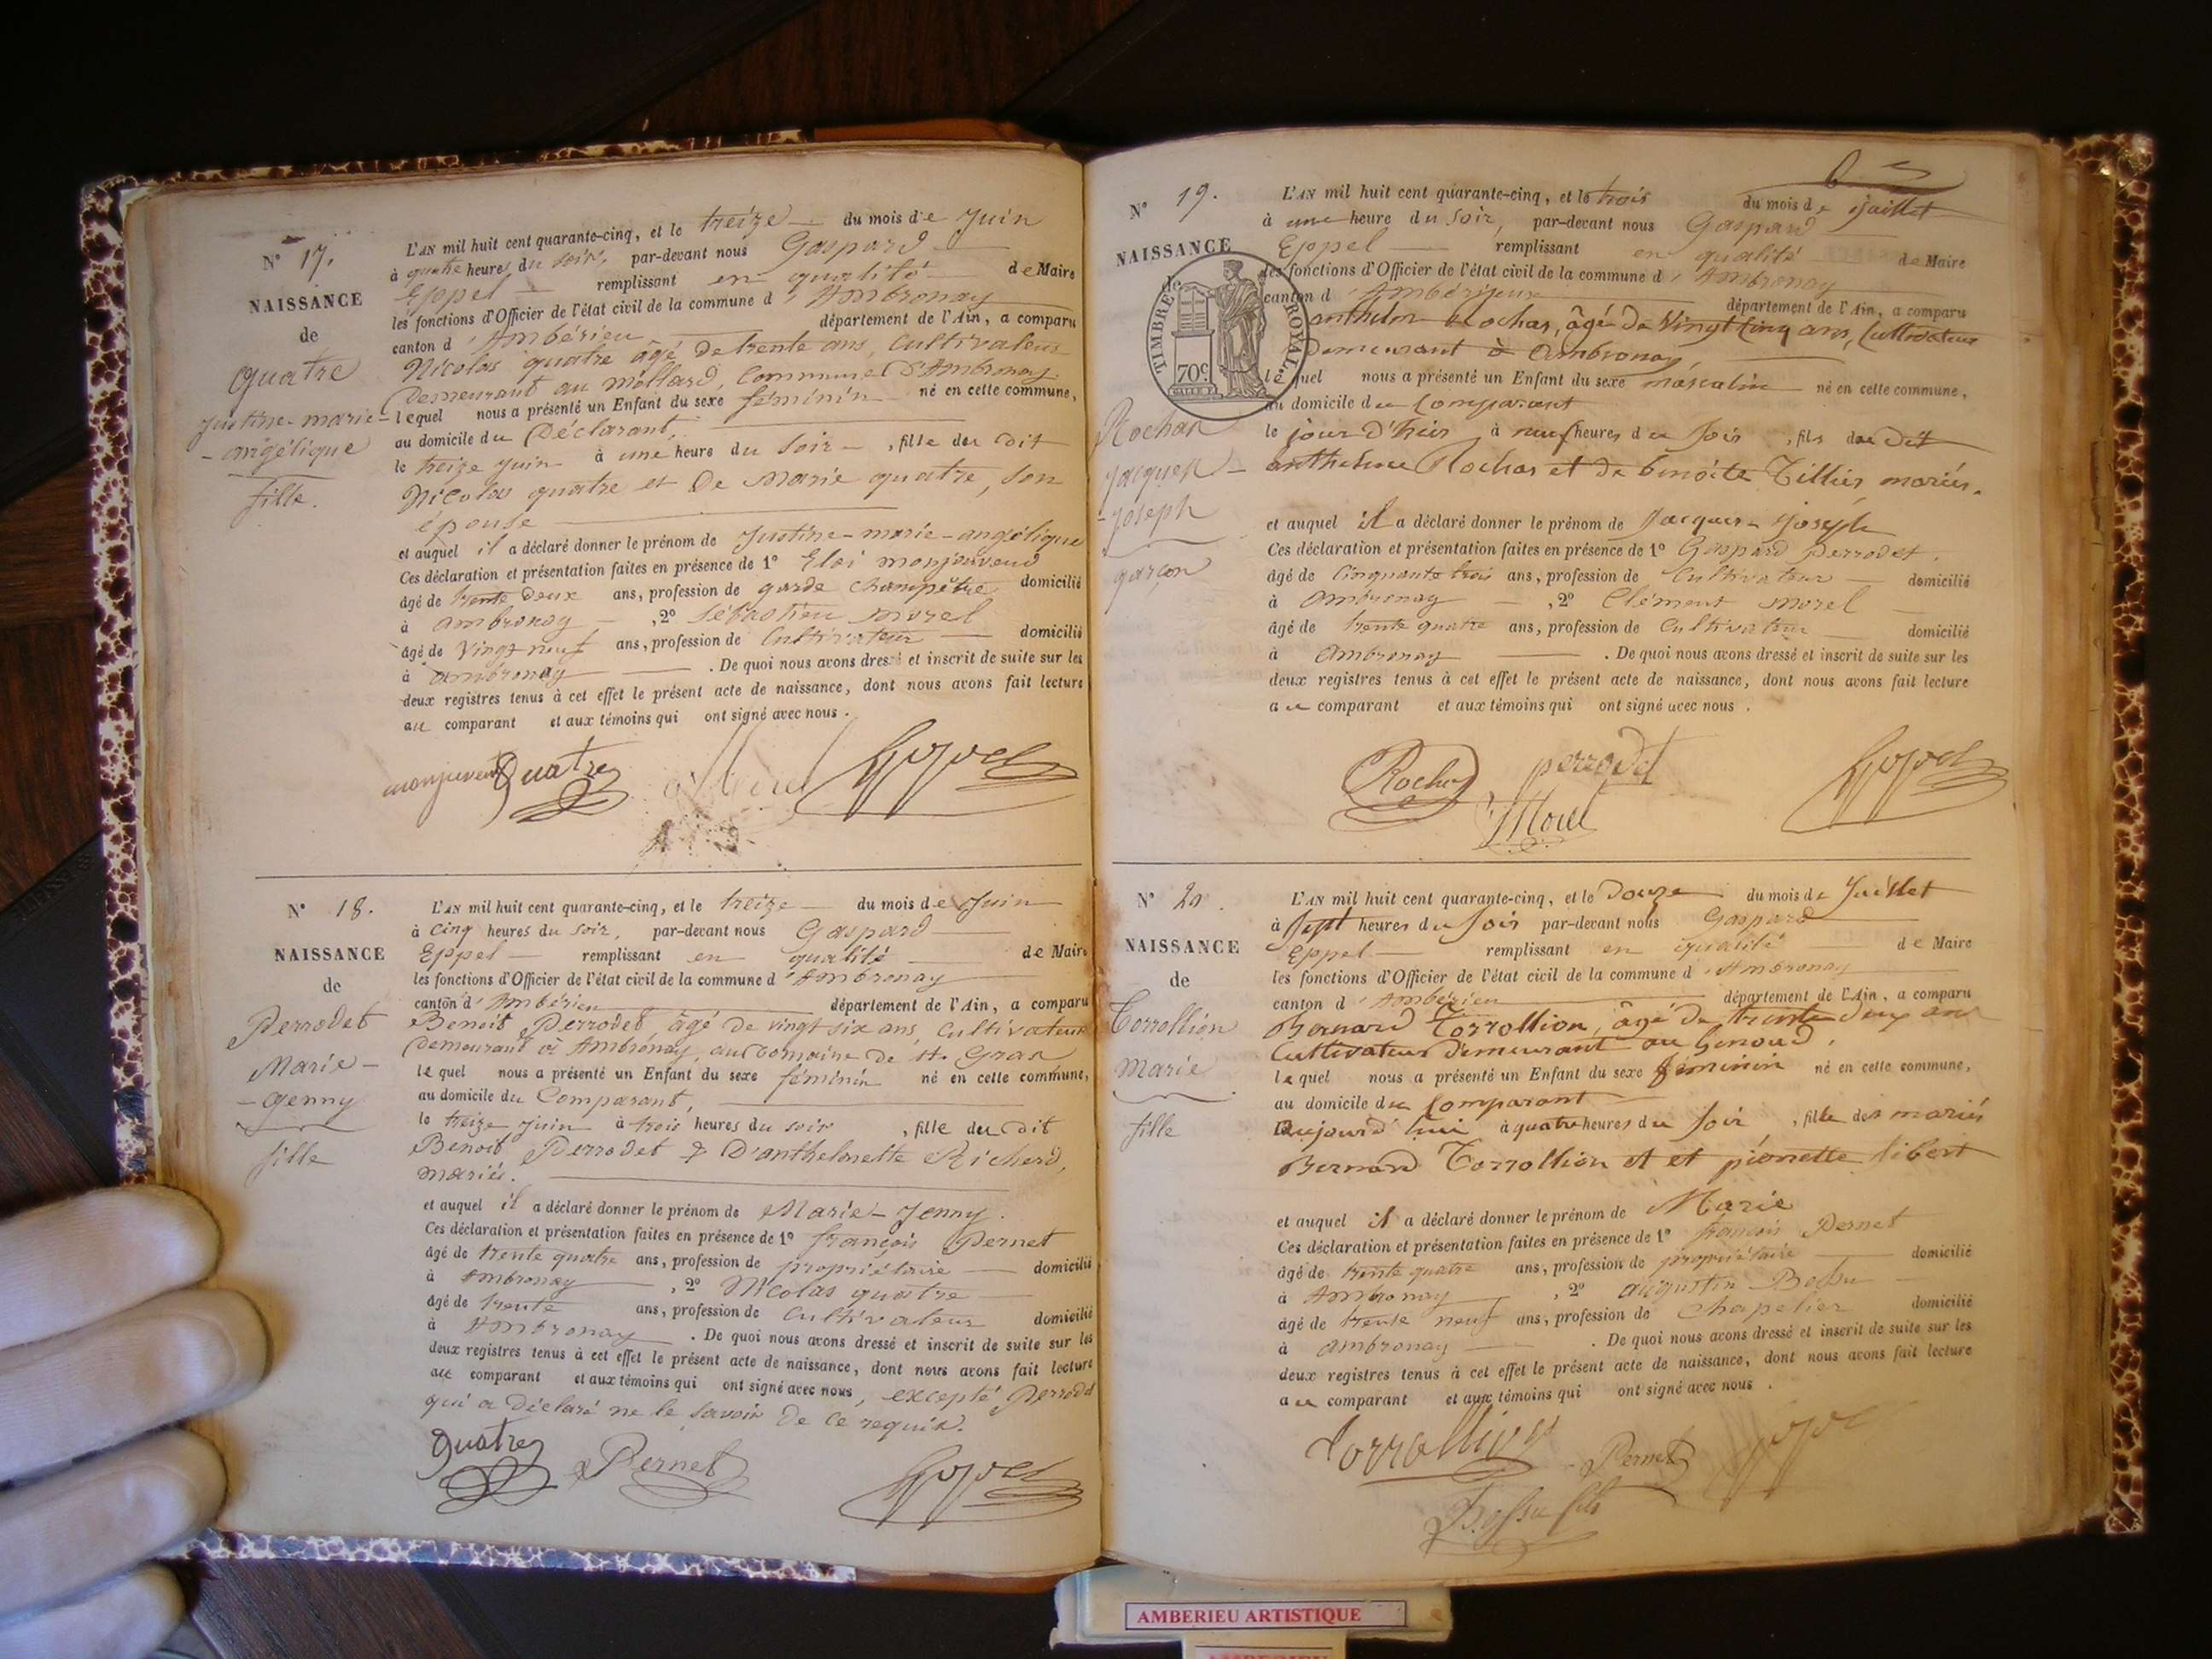 N° 17.
NAISSANCE
de
quatre
Justine-marie-
-angélique
fille.
L'AN mil huit cent quarante-cinq, et le treize du mois de Juin
à quatre heures du soir, par-devant nous Gaspard
Eppel remplissant en qualité de Maire
les fonctions d'Officier de l'état civil de la commune d'Ambronay
canton d'Ambérieu département de l'Ain, a comparu
Nicolas quatre âgé de trente ans, Cultivateur
demeurant au mollard, Commune d'Ambronay
lequel nous a présenté un Enfant du sexe féminin né en cette commune,
au domicile du Déclarant,
le treize Juin à une heure du soir, fille du dit
Nicolas quatre et de Marie quatre, son
épouse
et auquel il a déclaré donner le prénom de Justine-marie-angélique
Ces déclaration et présentation faites en présence de 1° Eloi monjouvend
âgé de trente deux ans, profession de garde champêtre domicilié
à ambronay, 2° Sébastien morel
âgé de vingt neuf ans, profession de Cultivateur domicilié
à ambronay. De quoi nous avons dressé et inscrit de suite sur les
deux registres tenus à cet effet le présent acte de naissance, dont nous avons fait lecture
au comparant et aux témoins qui ont signé avec nous.
Quatre Morel
N° 18.
NAISSANCE
de
Perrodet
Marie-
-Genny
fille
L'AN mil huit cent quarante-cinq, et le treize du mois de Juin
à cinq heures du soir, par-devant nous Gaspard
Eppel remplissant en qualité de Maire
les fonctions d'Officier de l'état civil de la commune d'Ambronay
canton d'Ambérieu département de l'Ain, a comparu
Benoit Perrodet, âgé de vingt six ans, Cultivateur
demeurant à Ambronay, au domaine de st. Gras
lequel nous a présenté un Enfant du sexe féminin né en cette commune,
au domicile du Comparant,
le treize Juin à trois heures du soir, fille du dit
Benoit Perrodet & D'anthelmette Richerd,
mariés.
et auquel il a déclaré donner le prénom de Marie-Jenny.
Ces déclaration et présentation faites en présence de 1° françois Pernet
âgé de trente quatre ans, profession de propriétaire domicilié
à ambronay, 2° Nicolas quatre
âgé de trente ans, profession de Cultivateur domicilié
à Ambronay. De quoi nous avons dressé et inscrit de suite sur les
deux registres tenus à cet effet le présent acte de naissance, dont nous avons fait lecture
au comparant et aux témoins qui ont signé avec nous, excepté Perrodet
qui a déclaré ne le savoir de ce requis.
Quatre Pernet
N° 19.
NAISSANCE
de
TIMBRE ROYAL
70c.
Rochas
Jacques-
-Joseph
garçon
L'AN mil huit cent quarante-cinq, et le trois du mois de Juillet
à une heure du soir, par-devant nous Gaspard
Eppel remplissant en qualité de Maire
les fonctions d'Officier de l'état civil de la commune d'Ambronay
canton d'Ambérieux département de l'Ain, a comparu
anthelme Rochas, âgé de vingt cinq ans, Cultivateur
demeurant à Ambronay,
lequel nous a présenté un Enfant du sexe masculin né en cette commune,
au domicile du Comparant
le jour d'hier à neuf heures du soir, fils du dit
anthelme Rochas et de benoite Tillier mariés.
et auquel il a déclaré donner le prénom de Jacques-Joseph
Ces déclaration et présentation faites en présence de 1° Gaspard Perrodet.
âgé de Cinquante trois ans, profession de Cultivateur domicilié
à Ambronay, 2° Clément morel
âgé de trente quatre ans, profession de Cultivateur domicilié
à Ambronay. De quoi nous avons dressé et inscrit de suite sur les
deux registres tenus à cet effet le présent acte de naissance, dont nous avons fait lecture
au comparant et aux témoins qui ont signé avec nous.
Rochas perrodet
Morel
N° 20.
NAISSANCE
de
Torrollion
Marie
fille
L'AN mil huit cent quarante-cinq, et le Douze du mois de Juillet
à Sept heures du Soir par-devant nous Gaspard
Eppel remplissant en qualité de Maire
les fonctions d'Officier de l'état civil de la commune d'Ambronay
canton d'Ambérieu département de l'Ain, a comparu
Bernard Torrollion, âgé de trente deux ans
Cultivateur demeurant au Genoud,
lequel nous a présenté un Enfant du sexe féminin né en cette commune,
au domicile du Comparant
aujourd'hui à quatre heures du Soir, fille des mariés
Bernard Torrollion et et pierrette libert
et auquel il a déclaré donner le prénom de Marie
Ces déclaration et présentation faites en présence de 1° françois Pernet
âgé de trente quatre ans, profession de propriétaire domicilié
à Ambronay, 2° augustin Bossu
âgé de trente neuf ans, profession de Chapelier domicilié
à ambronay. De quoi nous avons dressé et inscrit de suite sur les
deux registres tenus à cet effet le présent acte de naissance, dont nous avons fait lecture
au comparant et aux témoins qui ont signé avec nous.
Torrollion Pernet
Bossu fils
AMBERIEU ARTISTIQUE